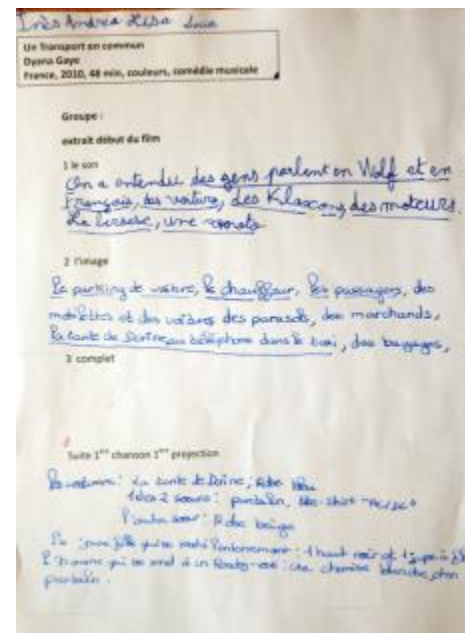 Inès Andréa Lisa
Un Transport en commun
Dyana Gaye
France, 2010, 48 min, couleurs, comédie musicale
Groupe :
extrait début du film
1 le son
On a entendu des gens parlent en Wolf et en
Français, des voiture, des Klaxcons, des moteurs.
La brosse, une
2 l'image
Le parking de voiture, le chauffeur, les passagers, des
mobilettes et des voitures des parasols, des marchands,
la tante de Dorine au téléphone dans le taxi, des bagages,
3 complet
Suite 1ère chanson 1ère projection
Les costumes : La tante de Dorine ; Robe bleu
1 des 2 soeurs : pantalon, tee-shirt "AC/DC"
l'autre soeur : Robe beige
La jeune fille qui se rend à l'enterrement : 1 haut noir et 1 jupe à
L'homme qui se rend à un Rendez-vous : une chemise blanche, d'un
pantalon.